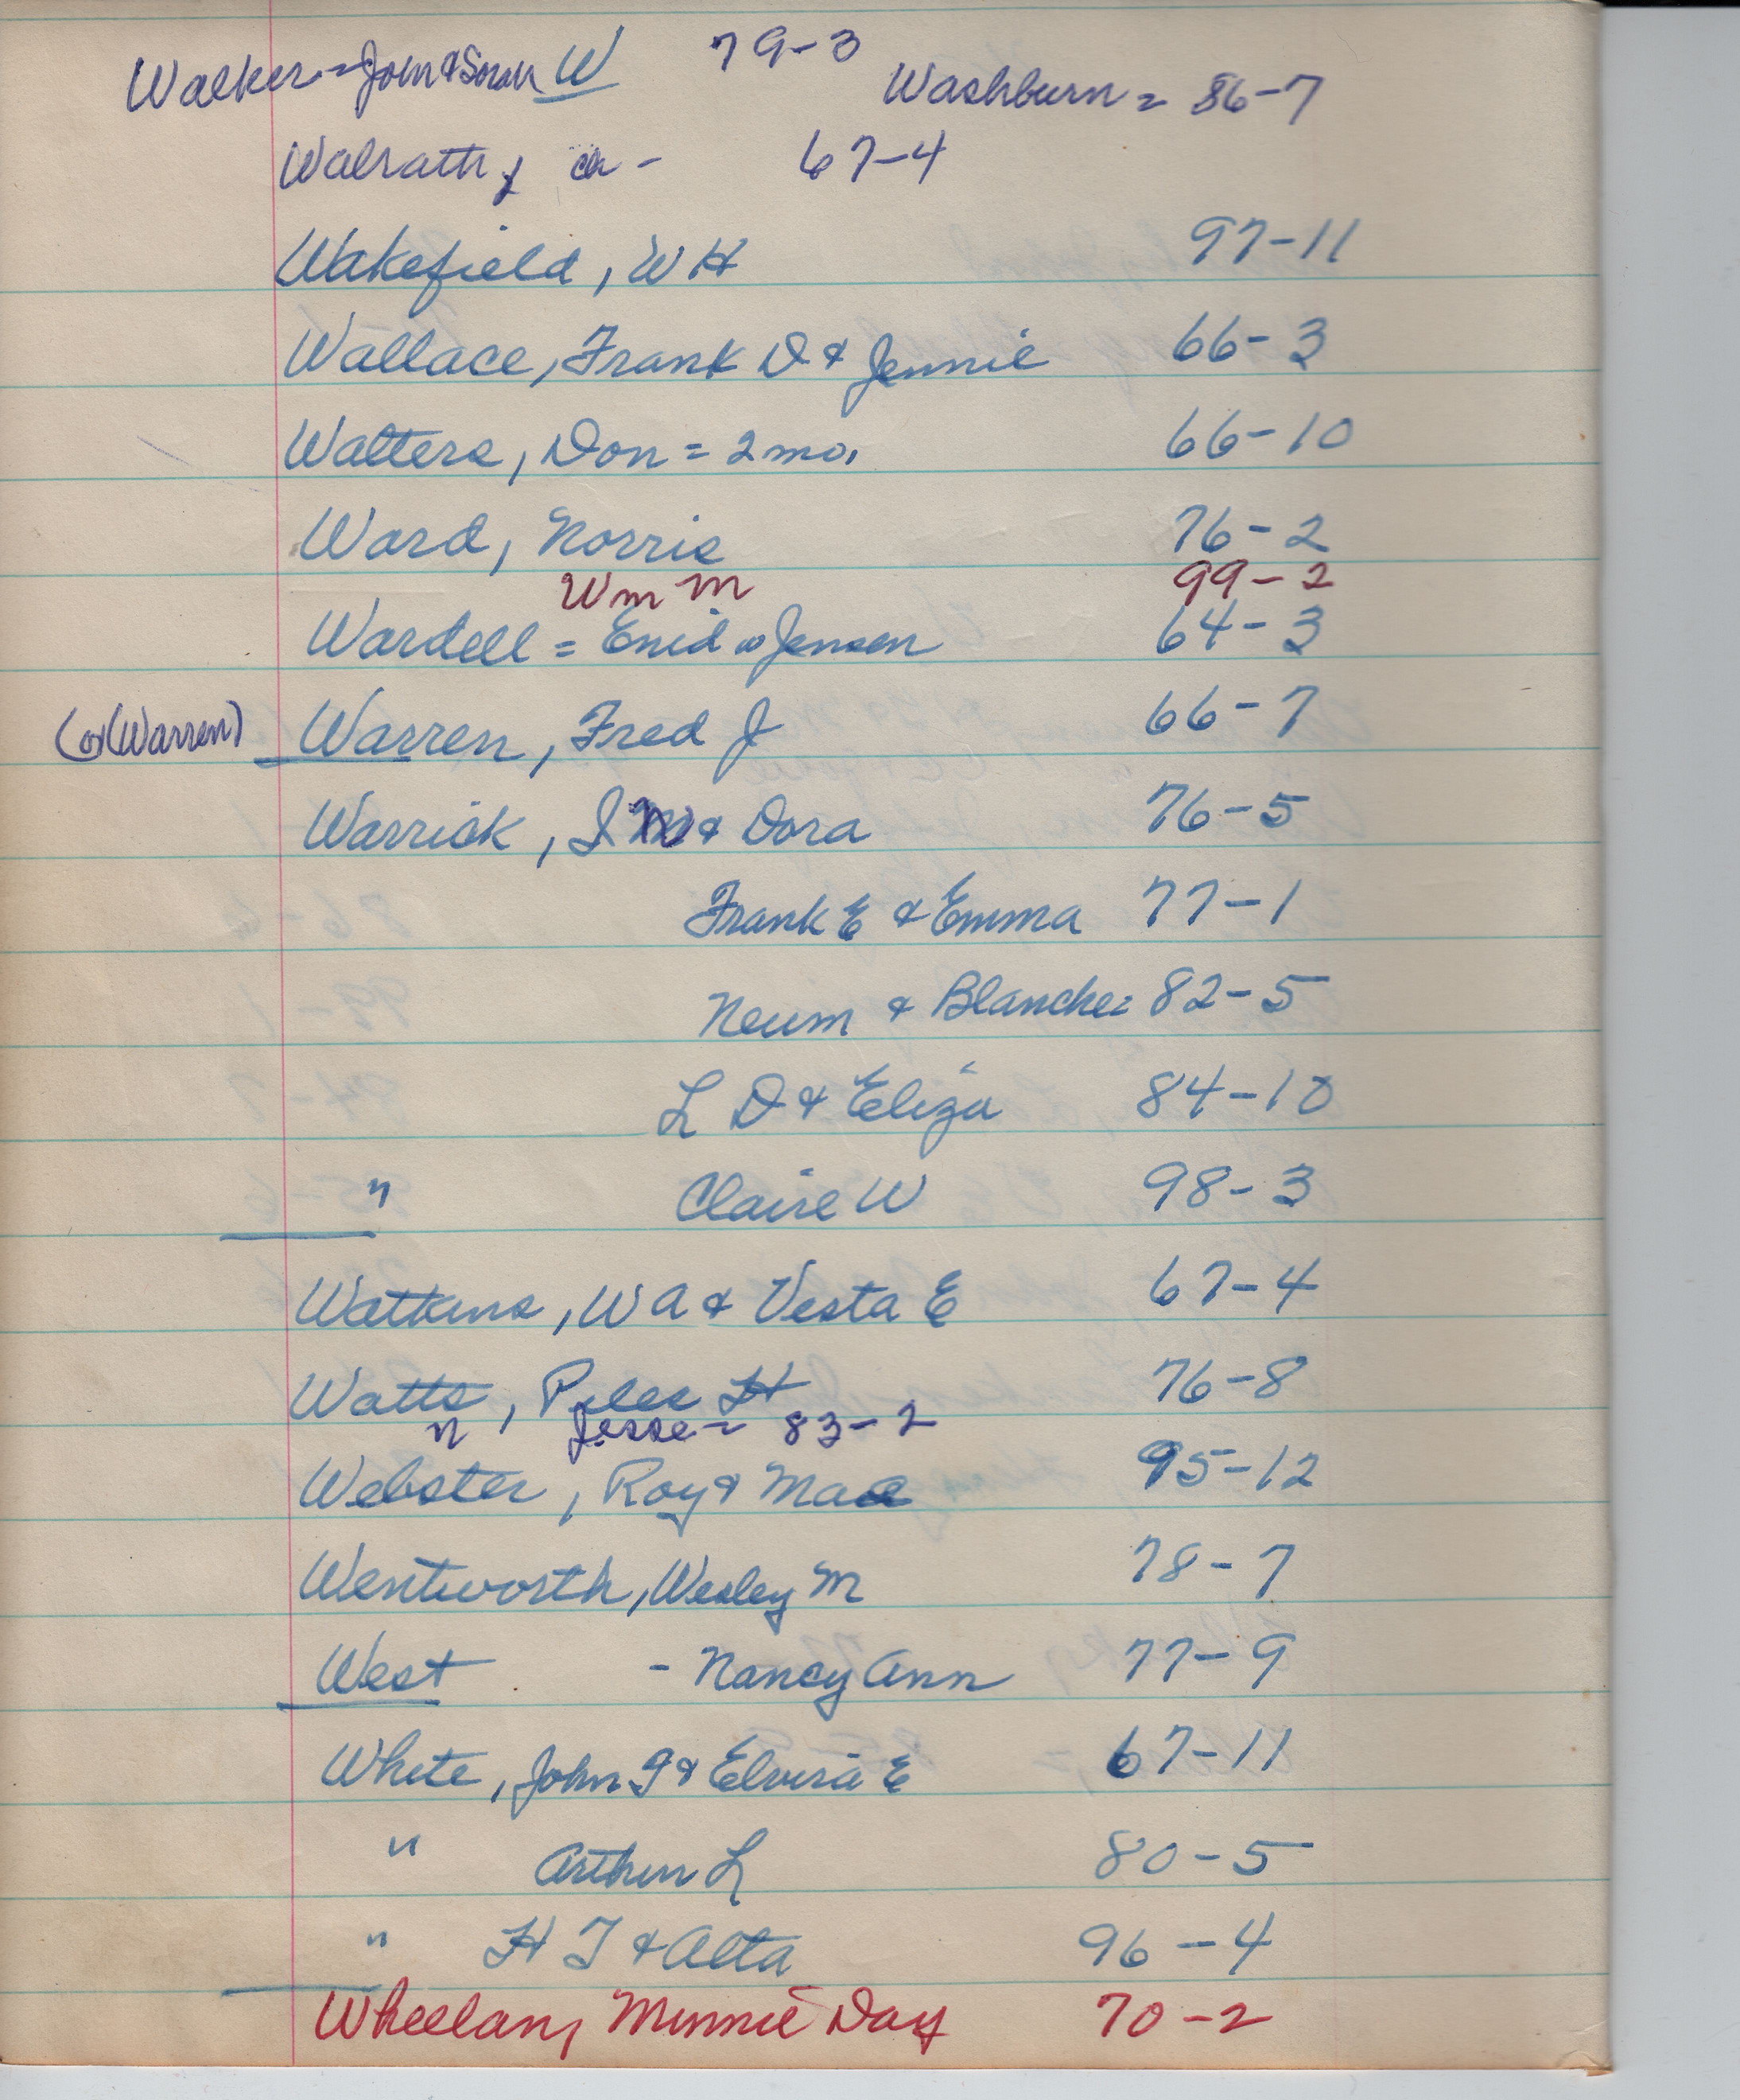 Walker = John & Sarah W 79-3
Washburn = 86-7
Walrath, 67-4
Wakefield, W H 97-11
Wallace, Frank D & Jennie 66-3
Walters, Don = 2 mo. 66-10
Ward, Norris 76-2
Wm M 99-2
Wardell = Enid Jensen 64-3
(or (Warren) Warren, Fred J 66-7
Warrick, & Dora 76-5
Frank E & Emma 77-1
Neum & Blanche = 82-5
L D & Eliza 84-10
" Claire W 98-3
Watkins, W A & Vesta E 67-4
Watts, H 76-8
" Jesse = 83-2
Webster, Roy & Mae 95-12
Wentworth, Wesley M 78-7
West - Nancy Ann 77-9
White, John & Elvira E 67-11
" Arthur L 80-5
" H T & Alta 96-4
Wheelan, Minnie Day 70-2